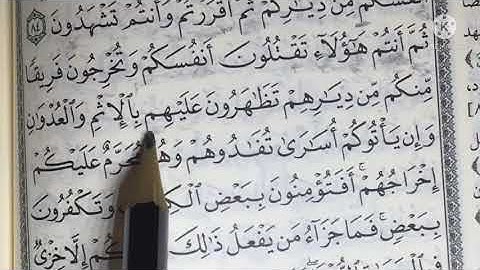 مِّن دِيَٰرِكُمْ ثُمَّ أَقْرَرْتُمْ وَأَنتُمْ تَشْهَدُونَ ٨٤
ثُمَّ أَنتُمْ هَٰٓؤُلَآءِ تَقْتُلُونَ أَنفُسَكُمْ وَتُخْرِجُونَ فَرِيقًا
مِّنكُم مِّن دِيَٰرِهِمْ تَظَٰهَرُونَ عَلَيْهِم بِٱلْإِثْمِ وَٱلْعُدْوَٰنِ
وَإِن يَأْتُوكُمْ أُسَٰرَىٰ تُفَٰدُوهُمْ عَلَيْكُمْ
إِخْرَاجُهُمْ ۚ أَفَتُؤْمِنُونَ بِبَعْضِ وَتَكْفُرُونَ
بِبَعْضٍ ۚ فَمَا جَزَآءُ مَن يَفْعَلُ ذَٰلِكَ إِلَّا خِزْىٌ